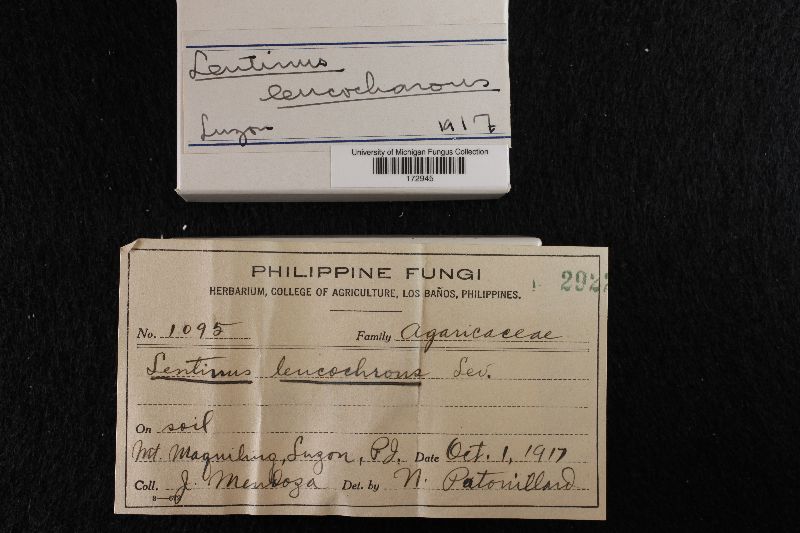 Lentinus
leucocharous
Luzon 1917
University of Michigan Fungus Collection
172945
PHILIPPINE FUNGI
HERBARIUM, COLLEGE OF AGRICULTURE, LOS BAÑOS, PHILIPPINES.
No. 1095 Family Agaricaceae
Lentinus leucochrous Lev.
On soil
Mt. Maquiling, Luzon, P.I. Date Oct. 1, 1917
Coll. J. Mendoza Det. by N. Patouillard